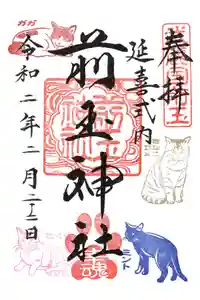 奉拝
延喜式内
前玉神社
令和二年二月二十二日
ガガ
ミント
魂